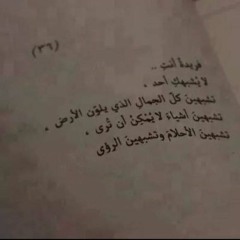 (٣٦)
فريدةٌ أنتِ ..
لا يُشبهكِ أحد .
تشبهين كلّ الجمال الذي يلوّن الأرض .
تشبهين أشياءَ لا يُمكِنُ أن تُرى .
تشبهين الأحلامَ وتشبهينَ الرؤى